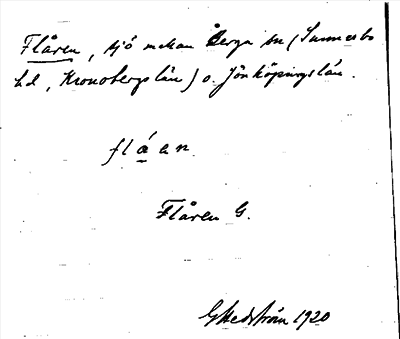 Flåren, sjö mellan Berga sn (Sunnerbo
hd, Kronobergs län) o. Jönköpings län.
flåen
Flåren G.
G Hedström 1920